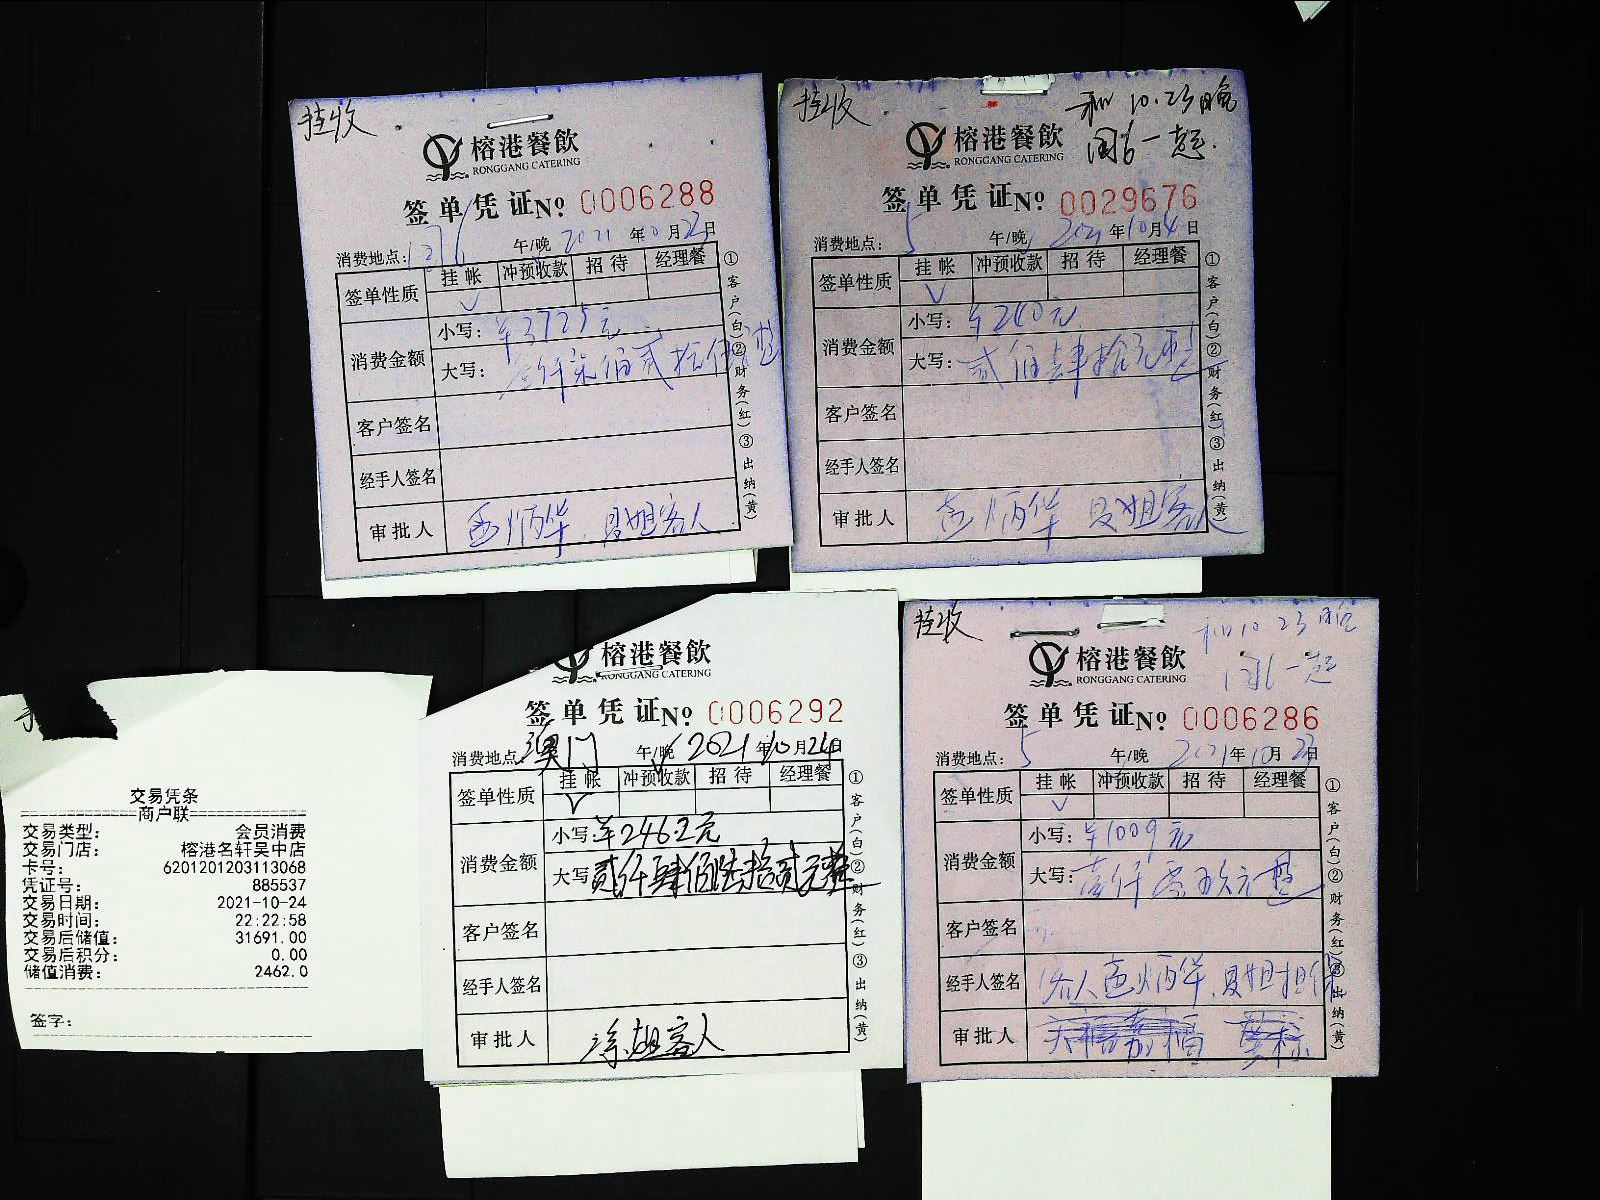 挂收
榕港餐飲
RONGGANG CATERING
签单凭证 No 0006288
消费地点: 午/晚 2021年10月23日
挂帐 冲预收款 招待 经理餐
签单性质 ✓
小写: ¥3725元
消费金额
大写: 叁仟柒佰贰拾伍元整
客户签名
经手人签名
审批人 孟炳华.吴姐客人
①客户(白)②财务(红)③出纳(黄)
挂收
和10.23晚
闽6一起.
榕港餐飲
RONGGANG CATERING
签单凭证 No 0029676
消费地点: 5 午/晚 2021年10月4日
挂帐 冲预收款 招待 经理餐
签单性质 ✓
小写: ¥240元
消费金额
大写: 贰佰肆拾元整
客户签名
经手人签名
审批人 孟炳华 吴姐客人
①客户(白)②财务(红)③出纳(黄)
交易凭条
商户联
交易类型: 会员消费
交易门店: 榕港名轩吴中店
卡号: 6201201203113068
凭证号: 885537
交易日期: 2021-10-24
交易时间: 22:22:58
交易后储值: 31691.00
交易后积分: 0.00
储值消费: 2462.0
签字:
榕港餐飲
RONGGANG CATERING
签单凭证 No 0006292
消费地点: 澳门 午/晚 2021年10月24日
挂帐 冲预收款 招待 经理餐
签单性质 ✓
小写: ¥2462元
消费金额
大写: 贰仟肆佰陆拾贰元整
客户签名
经手人签名
审批人 徐姐客人
①客户(白)②财务(红)③出纳(黄)
挂收
和10 23晚
闽6一起
榕港餐飲
RONGGANG CATERING
签单凭证 No 0006286
消费地点: 5 午/晚 2021年10月23日
挂帐 冲预收款 招待 经理餐
签单性质 ✓
小写: ¥1009元
消费金额
大写: 壹仟零玖元整
客户签名
经手人签名 客人孟炳华.吴姐担保
审批人
①客户(白)②财务(红)③出纳(黄)